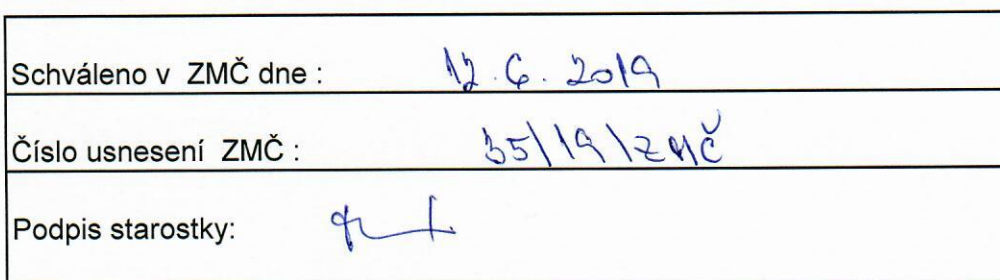 Schváleno v ZMČ dne : 12. 6. 2019
Číslo usnesení ZMČ : 35/19/ZMČ
Podpis starostky: